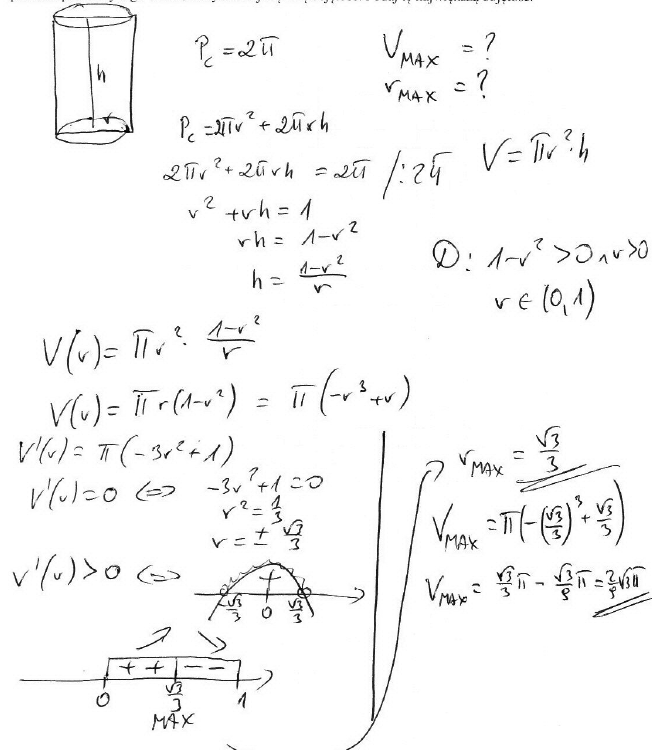 P_c = 2π
V_MAX = ?
r_MAX = ?
h
r
P_c = 2πr² + 2πrh
2πr² + 2πrh = 2π /:2π
V = πr²·h
r² + rh = 1
rh = 1-r²
h = (1-r²)/r
D: 1-r² > 0 ∧ r > 0
r ∈ (0,1)
V(r) = πr² · (1-r²)/r
V(r) = πr(1-r²) = π(-r³+r)
V'(r) = π(-3r²+1)
V'(r) = 0 ⇔ -3r²+1 = 0
r² = 1/3
r = ± √3/3
V'(r) > 0 ⇔
+
-√3/3 0 √3/3
+ + - -
0 √3/3 1
MAX
r_MAX = √3/3
V_MAX = π(-(√3/3)³ + √3/3)
V_MAX = √3/3 π - √3/9 π = 2/9 √3π